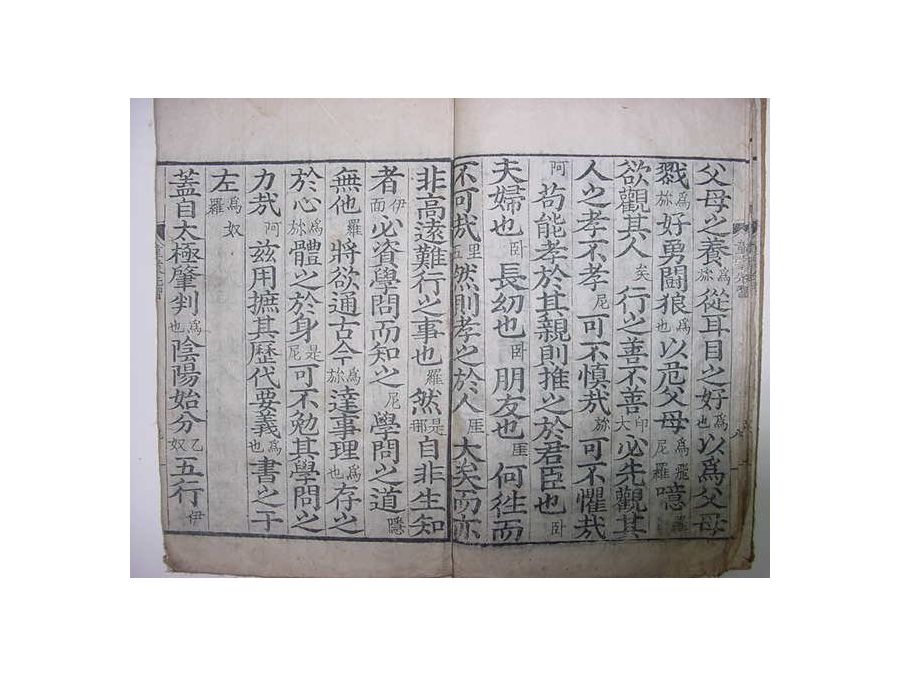 父母之養為旀從耳目之好為也以爲父母
戮為旀好勇鬪狼為也以危父母為飛尼羅噫羅
欲觀其人矣行之善不善大印必先觀其
人之孝不孝尼可不慎哉旀可不懼哉
阿苟能孝於其親則推之於君臣也卧
夫婦也卧長幼也卧朋友也厓何往而
不可哉里然則孝之於人厓大矣而亦
非高遠難行之事也羅然是那自非生知
者伊面必資學問而知之尼學問之道隱
無他羅將欲通古今為旀達事理為也存之
於心為旀體之於身是尼可不勉其學問之
力哉阿玆用摭其歷代要義為也書之于
左為奴羅
蓋自太極肇判為也陰陽始分乙奴五行伊